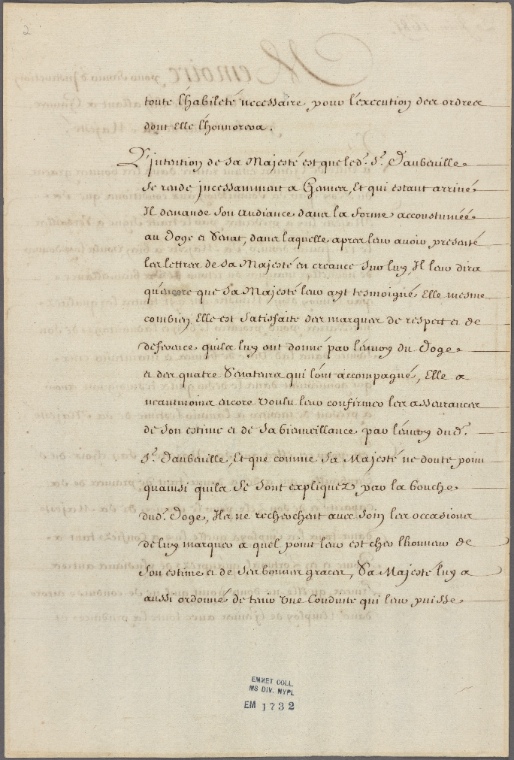 2
toute l'habileté necessaire, pour l'execution des ordres
dont Elle l'honorera.
L'intention de Sa Majesté est que led. Sr. Daubeville
Se rende jncessamment a Gennes, Et qui estant arrivé
Il demande Son Audiance dans la forme accoustumée
au Doge et Senat, dans laquelle, apres leur avoir presenté
les lettres de Sa Majesté en creance Sur luy, Il leur dira
qu'encore que Sa Majesté leur ayt tesmoigné Elle mesme
combien Elle est Satisfaite des marques de respect et de
deference qu'ils luy ont donné par l'envoy du Doge
et des quatre Senateurs qui l'ont accompagné, Elle a
neantmoins encore voulu leur confirmer les asseurances
de Son estime et de Sa bienveillance par l'envoy dud.
Sr. Daubeville, Et que comme Sa Majesté ne doute point
qu'ainsi qu'ils Se Sont expliquez par la bouche
dud. Doge, Ils ne recherchent avec Soin les occasions
de luy marquer a quel point leur est cher l'honneur de
Son estime et de Ses bonnes graces, Sa Majesté luy a
aussi ordonné de tenir Une Conduite qui leur puisse
EMMET COLL.
MS DIV. NYPL
EM 1732